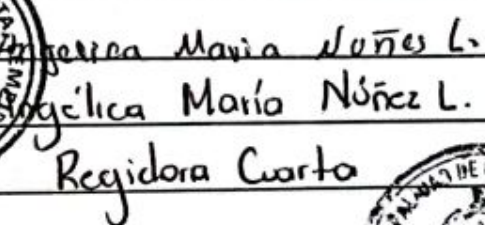 Angelica Maria Nuñes L.
Angélica María Núñez L.
Regidora Cuarta